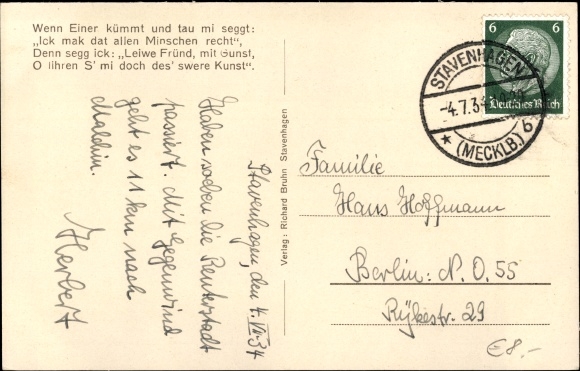 Wenn Einer kümmt und tau mi seggt:
„Ick mak dat allen Minschen recht“,
Denn segg ick: „Leiwe Fründ, mit Gunst,
O lihren S' mi doch des' swere Kunst“.
Stavenhagen, den 4. VII. 34
Haben soeben die Reuterstadt
passiert. Mit Gegenwind
geht es 11 km nach
Malchin.
Herbert
Verlag: Richard Bruhn Stavenhagen
6 6
Deutsches Reich
STAVENHAGEN
-4.7.34
★ (MECKLB) b
Familie
Hans Hoffmann
Berlin: N.O.55
Rykestr. 29
€8.-